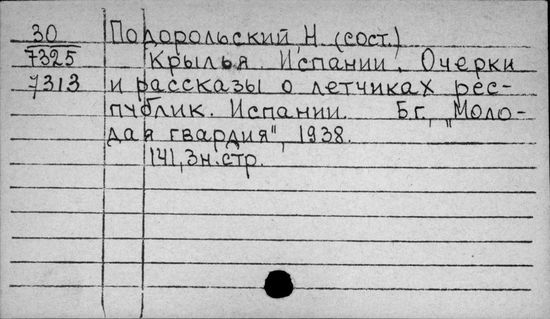 30 Подорольский, Н. (сост.)
7325 Крылья Испании. Очерки
7313 и рассказы о летчиках рес-
публик. Испании. Б.г., „Моло-
дая гвардия", 1938.
141,3н.стр.